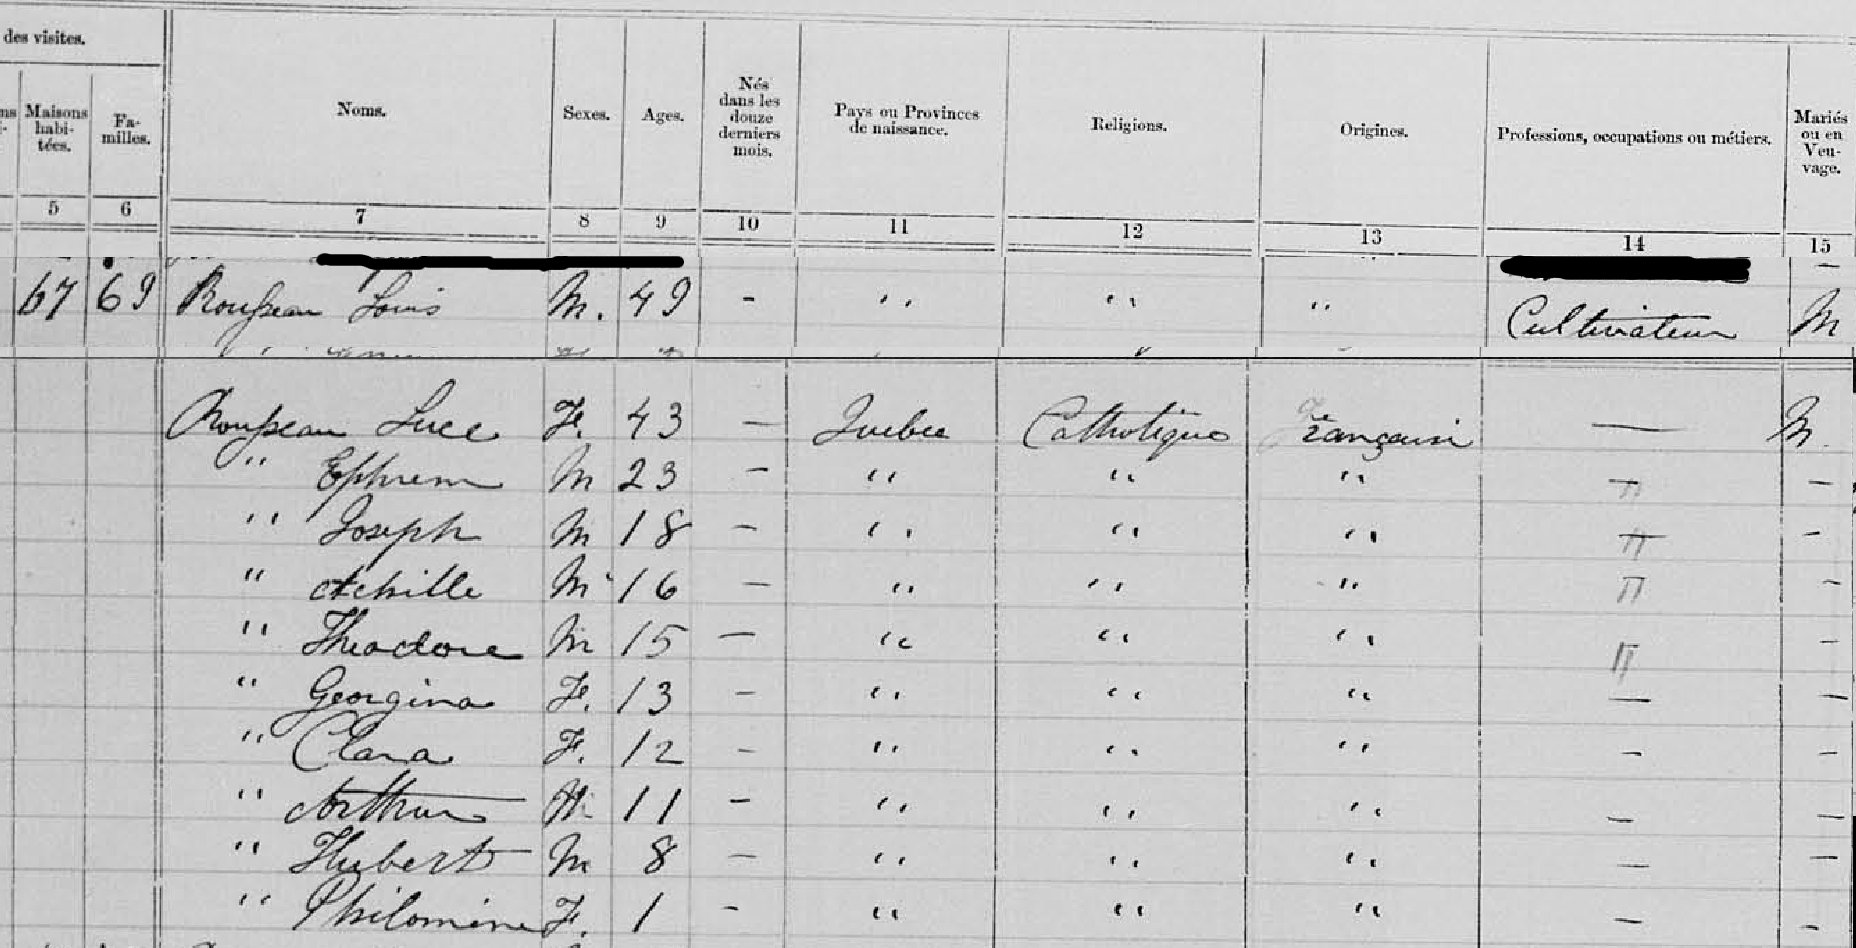 des visites.
Maisons habi- tées. Fa- milles. Noms. Sexes. Ages. Nés dans les douze derniers mois. Pays ou Provinces de naissance. Religions. Origines. Professions, occupations ou métiers. Mariés ou en Veu- vage.
5 6 7 8 9 10 11 12 13 14 15
67 69 Rousseau Louis M. 49 - " " " Cultivateur M
Rousseau Luce F. 43 — Quebec Catholique Française — M.
" Ephrem M 23 - " " " — —
" Joseph M 18 - " " " — -
" Achille M 16 — " " " -
" Theodore M 15 — " " " -
" Georgina F. 13 - " " " — —
" Clara F. 12 - " " " - -
" Arthur M 11 - " " " - —
" Hubert M 8 — " " " — —
" Philomène F. 1 - " " " — -